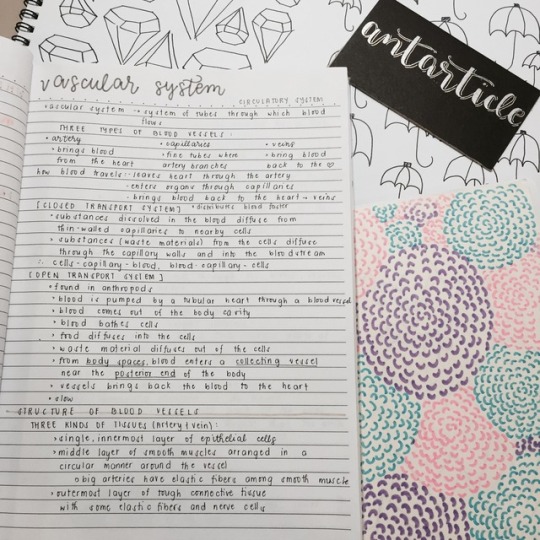 vascular system
CIRCULATORY SYSTEM
vascular system → system of tubes through which blood
flows
THREE TYPES OF BLOOD VESSELS:
• artery • capillaries • veins
• brings blood • fine tubes where • bring blood
from the heart artery branches back to the ♡
how blood travels: leaves heart through the artery
enters organs through capillaries
brings blood back to the heart → veins
[CLOSED TRANSPORT SYSTEM] • distributes blood faster
• substances dissolved in the blood diffuse from
thin-walled capillaries to nearby cells
• substances (waste materials) from the cells diffuse
through the capillary walls and into the bloodstream
∴ cells - capillary - blood, blood - capillary - cells
[OPEN TRANSPORT SYSTEM]
• found in anthropods
• blood is pumped by a tubular heart through a blood vessel
• blood comes out of the body cavity
• blood bathes cells
• food diffuses into the cells
• waste material diffuses out of the cells
• from body spaces, blood enters a collecting vessel
near the posterior end of the body
• vessels brings back the blood to the heart
• slow
STRUCTURE OF BLOOD VESSELS
THREE KINDS OF TISSUES (artery & vein):
• single, innermost layer of epithelial cells
• middle layer of smooth muscles arranged in a
circular manner around the vessel
o big arteries have elastic fibers among smooth muscle
• outermost layer of tough connective tissue
with some elastic fibers and nerve cells
antarticle